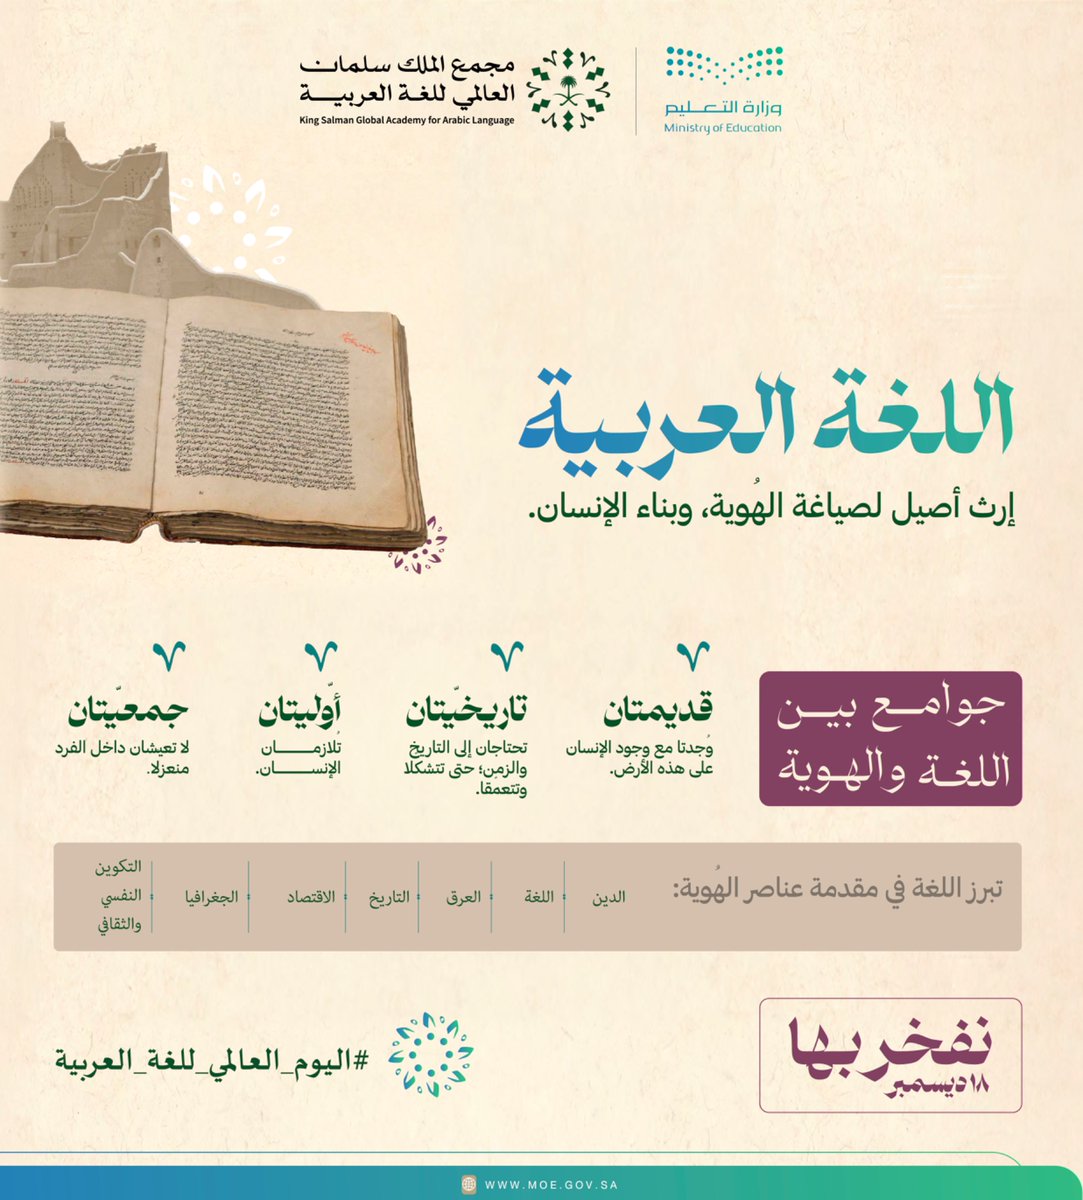 مجمع الملك سلمان
العالمي للغة العربية
King Salman Global Academy for Arabic Language
وزارة التعليم
Ministry of Education
اللغة العربية
إرث أصيل لصياغة الهُوية، وبناء الإنسان.
جوامع بين
اللغة والهوية
قديمتان
وُجدتا مع وجود الإنسان
على هذه الأرض.
تاريخيّتان
تحتاجان إلى التاريخ
والزمن؛ حتى تتشكلا
وتتعمقا.
أوّليتان
تُلازمان
الإنسان.
جمعيّتان
لا تعيشان داخل الفرد
منعزلا.
تبرز اللغة في مقدمة عناصر الهُوية:
الدين
اللغة
العرق
التاريخ
الاقتصاد
الجغرافيا
التكوين
النفسي
والثقافي
نفخر بها
١٨ ديسمبر
#اليوم_العالمي_للغة_العربية
WWW.MOE.GOV.SA